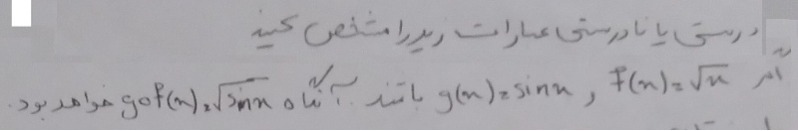 درستی یا نادرستی عبارات زیر را مشخص کنید
اگر f(x)=√x و g(x)=sinx باشند. آنگاه gof(x)=√sinx خواهد بود.